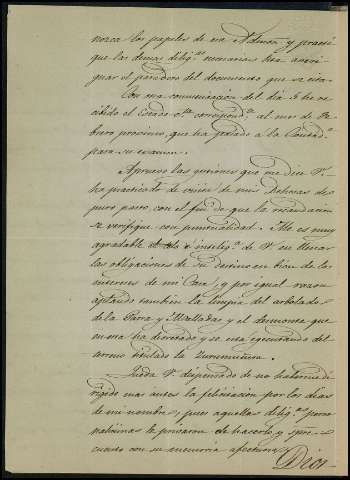 nozca los papeles de esa Admon y practi
que las demas dilig.s necesarias para averi
guar el paradero del documento que se cita.
Con su comunicacion del dia 5 he re
cibido el Estado correspond.te al mes de Fe
brero proximo, que ha pasado a la Contad.a
para su examen.
Apruevo las gestiones que me dice V.
ha practicado de visita de mis Dehesas de
puro pasto, con el fin de que la recaudacion
se verifique con puntualidad. Me es muy
agradable el celo e intelig.a de V. en llenar
las obligaciones de su destino en bien de los
intereses de mi Casa, y por igual razon
aplaudo tambien la limpia del arbolado
de la Parra y Malladas y el desmonte que
en esa ha decretado y se esta egecutando del
terreno titulado la
Queda V. dispensado de no haberme di
rigido mas antes la felicitacion por los dias
de mi nombre, pues aquellas dilig.s
le privaron de hacerlo y
cuando con su memoria afectuosa
Dios